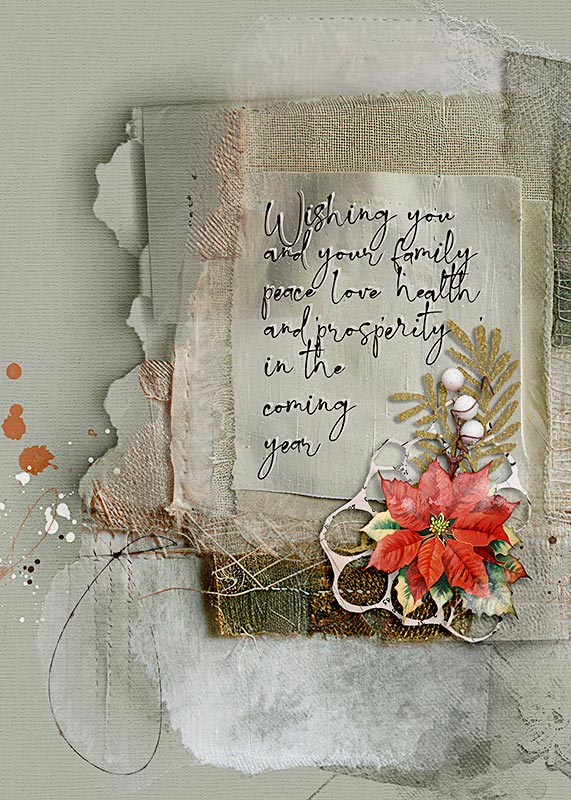 Wishing you
and your family
peace love health
and prosperity
in the
coming
year